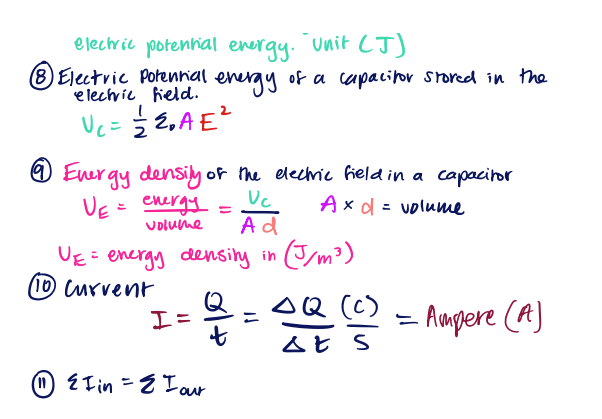 electric potential energy. Unit (J)
⑧ Electric Potential energy of a capacitor stored in the
electric field.
U_C = 1/2 ε₀ A E²
⑨ Energy density of the electric field in a capacitor
U_E = energy/volume = U_C/A d   A × d = volume
U_E = energy density in (J/m³)
⑩ Current
I = Q/t = ΔQ/Δt (C)/S = Ampere (A)
⑪ ΣI in = ΣI out